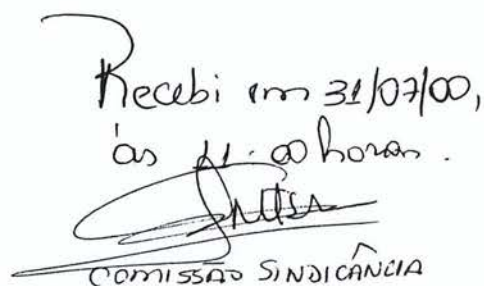 Recebi em 31/07/00,
às 11:00 horas.
COMISSÃO SINDICÂNCIA